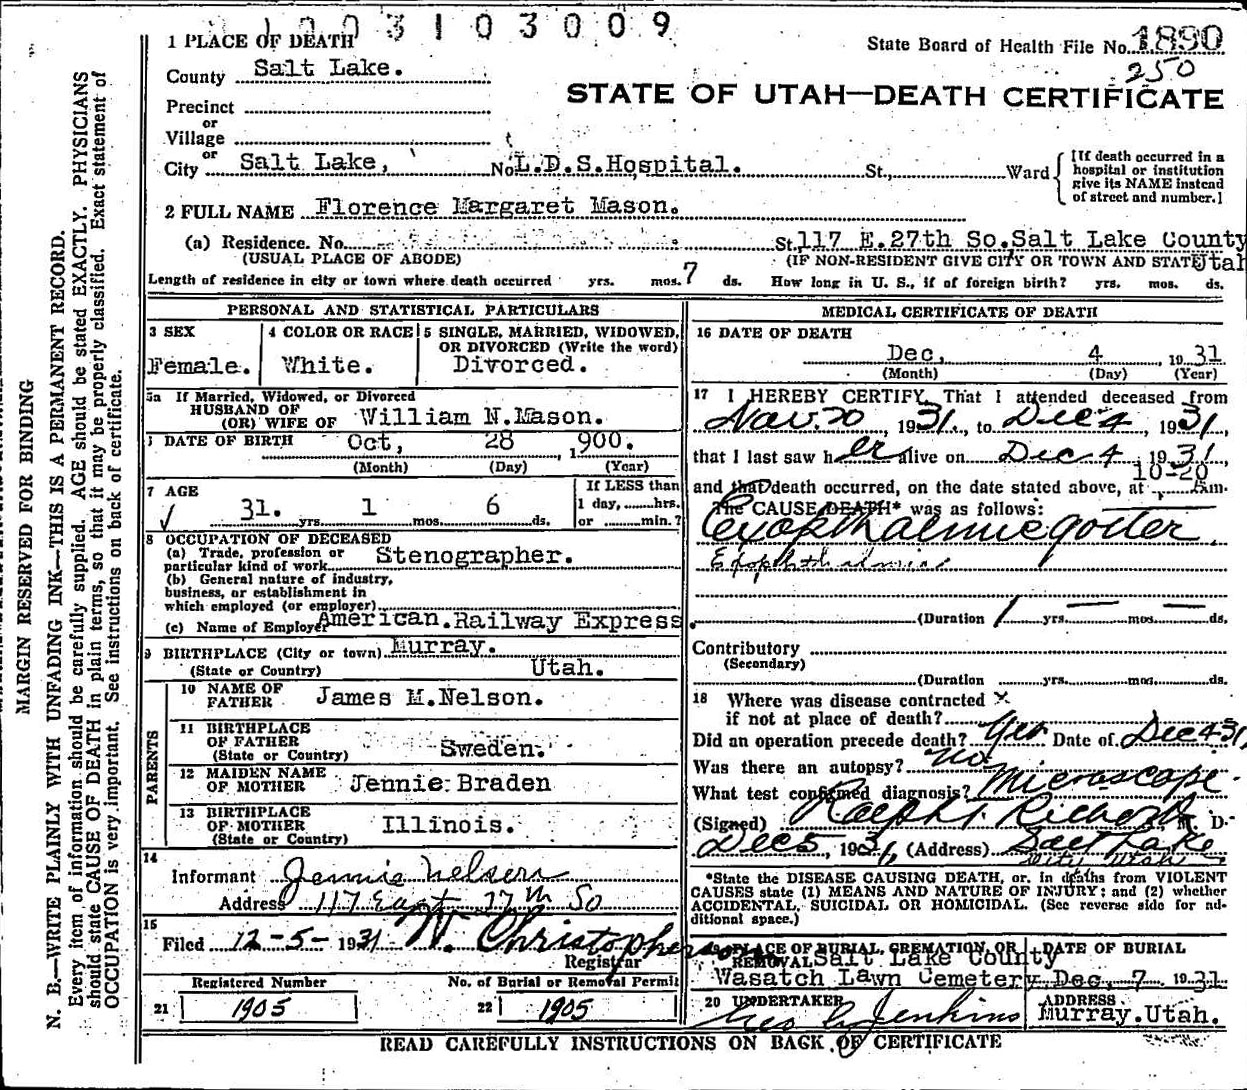 1003103009
State Board of Health File No. 1890
250
STATE OF UTAH—DEATH CERTIFICATE
1 PLACE OF DEATH
County Salt Lake.
Precinct
or
Village
or
City Salt Lake, No. L.D.S.Hospital. St., Ward
[If death occurred in a
hospital or institution
give its NAME instead
of street and number.]
2 FULL NAME Florence Margaret Mason.
(a) Residence. No. St. 117 E.27th So.Salt Lake County
(USUAL PLACE OF ABODE) (IF NON-RESIDENT GIVE CITY OR TOWN AND STATE) Utah
Length of residence in city or town where death occurred yrs. mos. 7 ds. How long in U. S., if of foreign birth? yrs. mos. ds.
PERSONAL AND STATISTICAL PARTICULARS
3 SEX
Female.
4 COLOR OR RACE
White.
5 SINGLE, MARRIED, WIDOWED,
OR DIVORCED (Write the word)
Divorced.
5a If Married, Widowed, or Divorced
HUSBAND OF
(OR) WIFE OF William N.Mason.
DATE OF BIRTH Oct, 28 1900.
(Month) (Day) (Year)
7 AGE
31. yrs. 1 mos. 6 ds.
If LESS than
1 day,......hrs.
or ......min.?
8 OCCUPATION OF DECEASED
(a) Trade, profession or
particular kind of work Stenographer.
(b) General nature of industry,
business, or establishment in
which employed (or employer)
(c) Name of Employer American.Railway Express.
9 BIRTHPLACE (City or town) Murray.
(State or Country) Utah.
PARENTS
10 NAME OF
FATHER James M.Nelson.
11 BIRTHPLACE
OF FATHER
(State or Country) Sweden.
12 MAIDEN NAME
OF MOTHER Jennie Braden
13 BIRTHPLACE
OF MOTHER
(State or Country) Illinois.
14
Informant Jennie Nelson
Address 117 East 27th So
15
Filed 12-5-1931 W. Christopherson
Registrar
Registered Number No. of Burial or Removal Permit
21 1905 22 1905
MEDICAL CERTIFICATE OF DEATH
16 DATE OF DEATH
Dec, 4 1931
(Month) (Day) (Year)
17 I HEREBY CERTIFY, That I attended deceased from
Nov. 20, 1931., to Dec 4, 1931,
that I last saw h er alive on Dec 4 1931,
10-20
and that death occurred, on the date stated above, at Am.
The CAUSE DEATH* was as follows:
Exopthalmic goiter.
Exophthalmic
(Duration 1 yrs. — mos. — ds.
Contributory
(Secondary)
(Duration yrs. mos. ds.
18 Where was disease contracted X
if not at place of death?
Did an operation precede death? Yes Date of. Dec 4-31,
Was there an autopsy? No
What test confirmed diagnosis? Microscope.
(Signed) Ralph T. Richards M. D.
Dec 5, 1931, (Address) Salt Lake
City Utah
*State the DISEASE CAUSING DEATH, or, in deaths from VIOLENT
CAUSES state (1) MEANS AND NATURE OF INJURY; and (2) whether
ACCIDENTAL, SUICIDAL OR HOMICIDAL. (See reverse side for ad-
ditional space.)
19 PLACE OF BURIAL, CREMATION, OR
REMOVAL Salt Lake County
Wasatch Lawn Cemetery
DATE OF BURIAL
Dec, 7 1931
20 UNDERTAKER
Geo C. Jenkins
ADDRESS
Murray.Utah.
READ CAREFULLY INSTRUCTIONS ON BACK OF CERTIFICATE
MARGIN RESERVED FOR BINDING
N. B.—WRITE PLAINLY WITH UNFADING INK—THIS IS A PERMANENT RECORD.
Every item of information should be carefully supplied. AGE should be stated EXACTLY. PHYSICIANS
should state CAUSE OF DEATH in plain terms, so that it may be properly classified. Exact statement of
OCCUPATION is very important. See instructions on back of certificate.